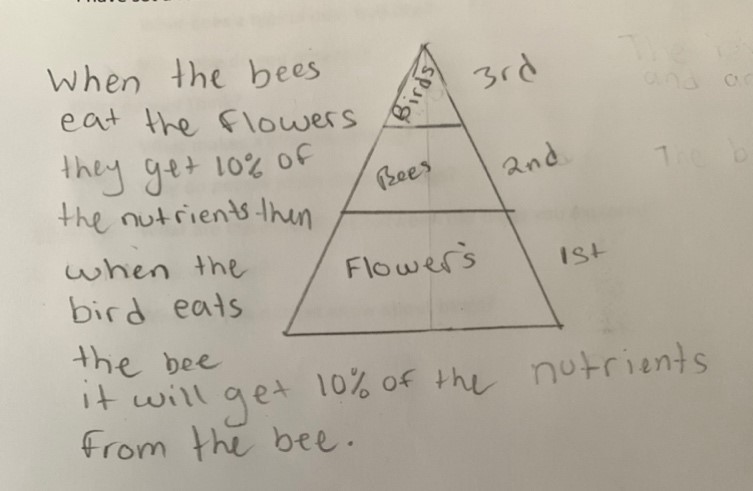 When the bees
eat the flowers
they get 10% of
the nutrients then
when the
bird eats
the bee
it will get 10% of the nutrients
from the bee.
Birds
3rd
Bees
2nd
Flower's
1st